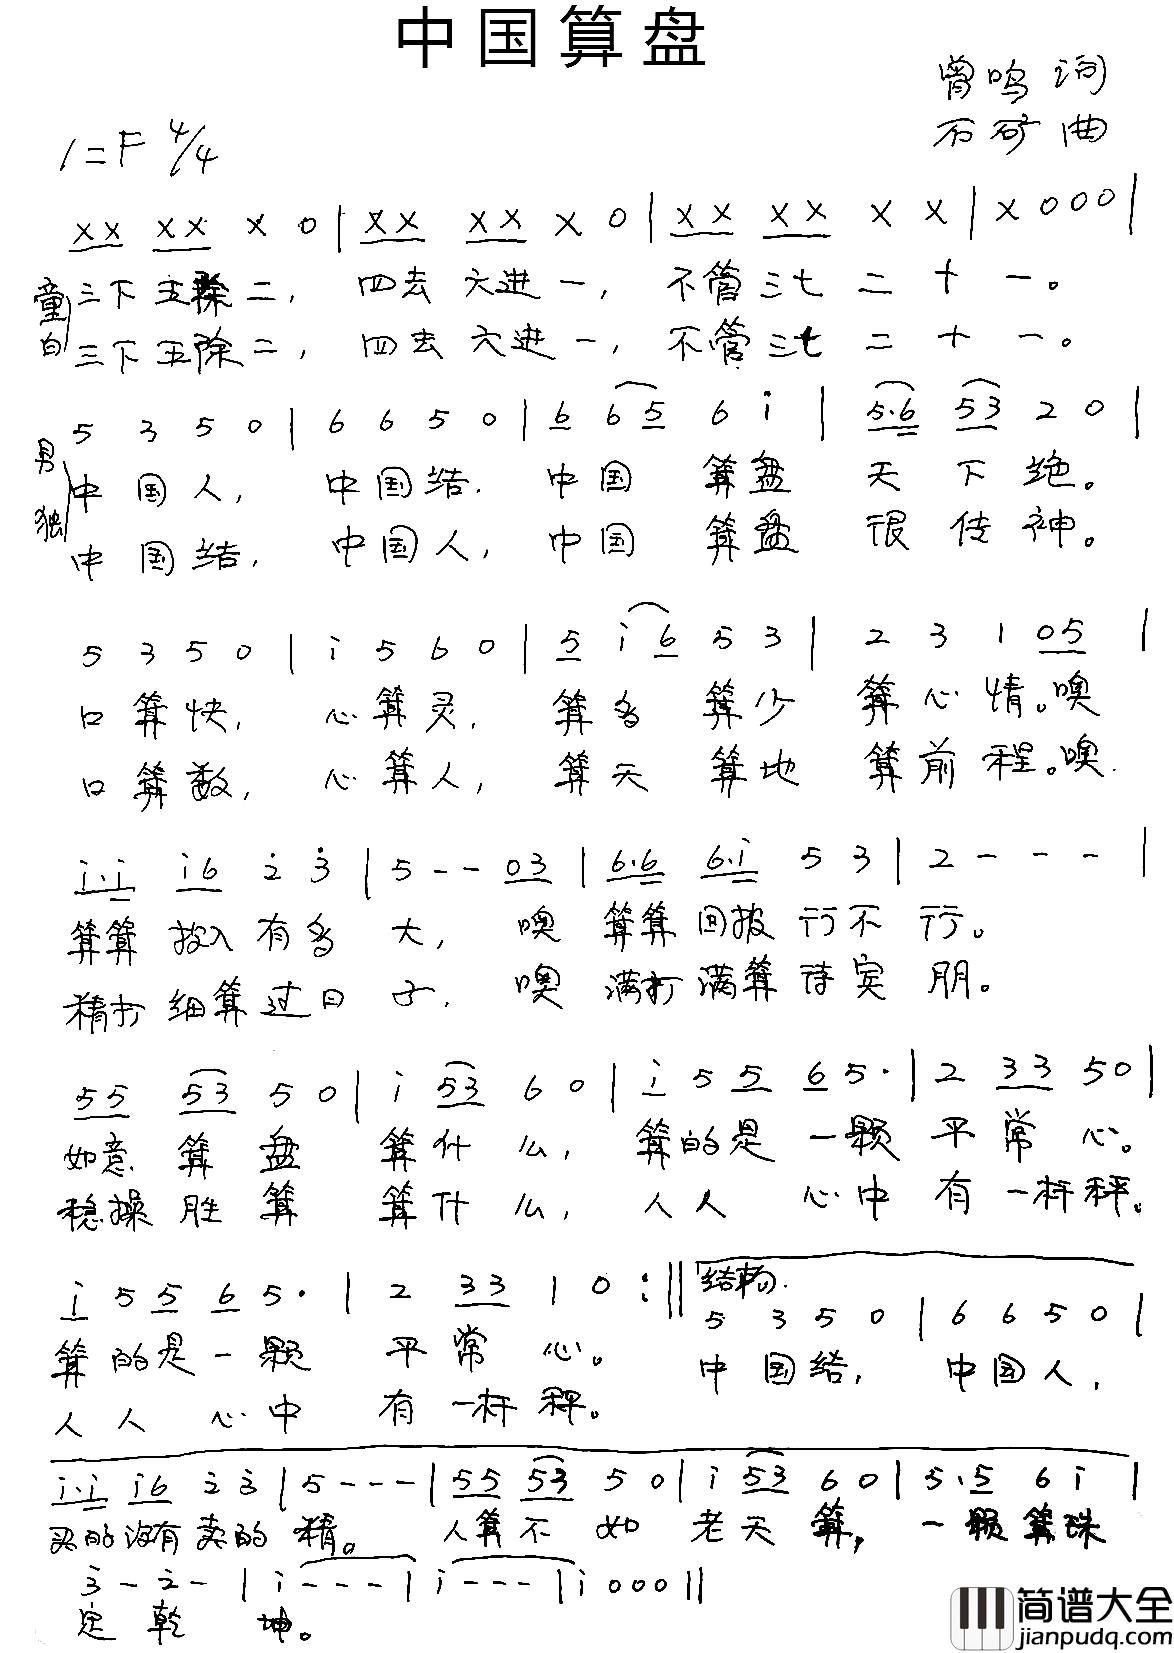 中国算盘
曾鸣 词
石矿 曲
1=F 4/4
XX XX X 0 | XX XX X 0 | XX XX X X | X 0 0 0 |
童白
三下五除二， 四去六进一， 不管三七二十一。
三下五除二， 四去六进一， 不管三七二十一。
5 3 5 0 | 6 6 5 0 | 6 6 5 6 i | 5·6 53 2 0 |
男独
中国人， 中国结． 中国 算盘 天下绝。
中国结， 中国人， 中国 算盘 很传神。
5 3 5 0 | i 5 6 0 | 5 i 6 5 3 | 2 3 1 05 |
口算快， 心算灵， 算多 算少 算心情。噢
口算数， 心算人， 算天 算地 算前程。噢．
i·i i6 2̇ 3̇ | 5 - - 03 | 6·6 6·i 5 3 | 2 - - - |
算算 投入有多 大， 噢 算算回报行不行。
精打 细算过日 子． 噢 满打满算待宾朋。
55 53 5 0 | i 53 6 0 | i 5 5 6 5· | 2 33 5 0 |
如意 算 盘 算什么， 算的是一颗 平常心。
稳操 胜 算 算什么， 人人 心中 有一杆秤。
i 5 5 6 5· | 2 33 1 0 :||
结束句．
5 3 5 0 | 6 6 5 0 |
算的是一颗 平常心。 中国结， 中国人，
人人 心中 有一杆秤。
i·i i6 2̇ 3̇ | 5 - - - | 55 53 5 0 | i 53 6 0 | 5·5 6 i |
买的没有卖的精。 人算不如 老天算， 一颗算珠
3̇ - 2̇ - | i - - - | i - - - | i 0 0 0 ||
定乾 坤。
简谱大全
jianpudq.com